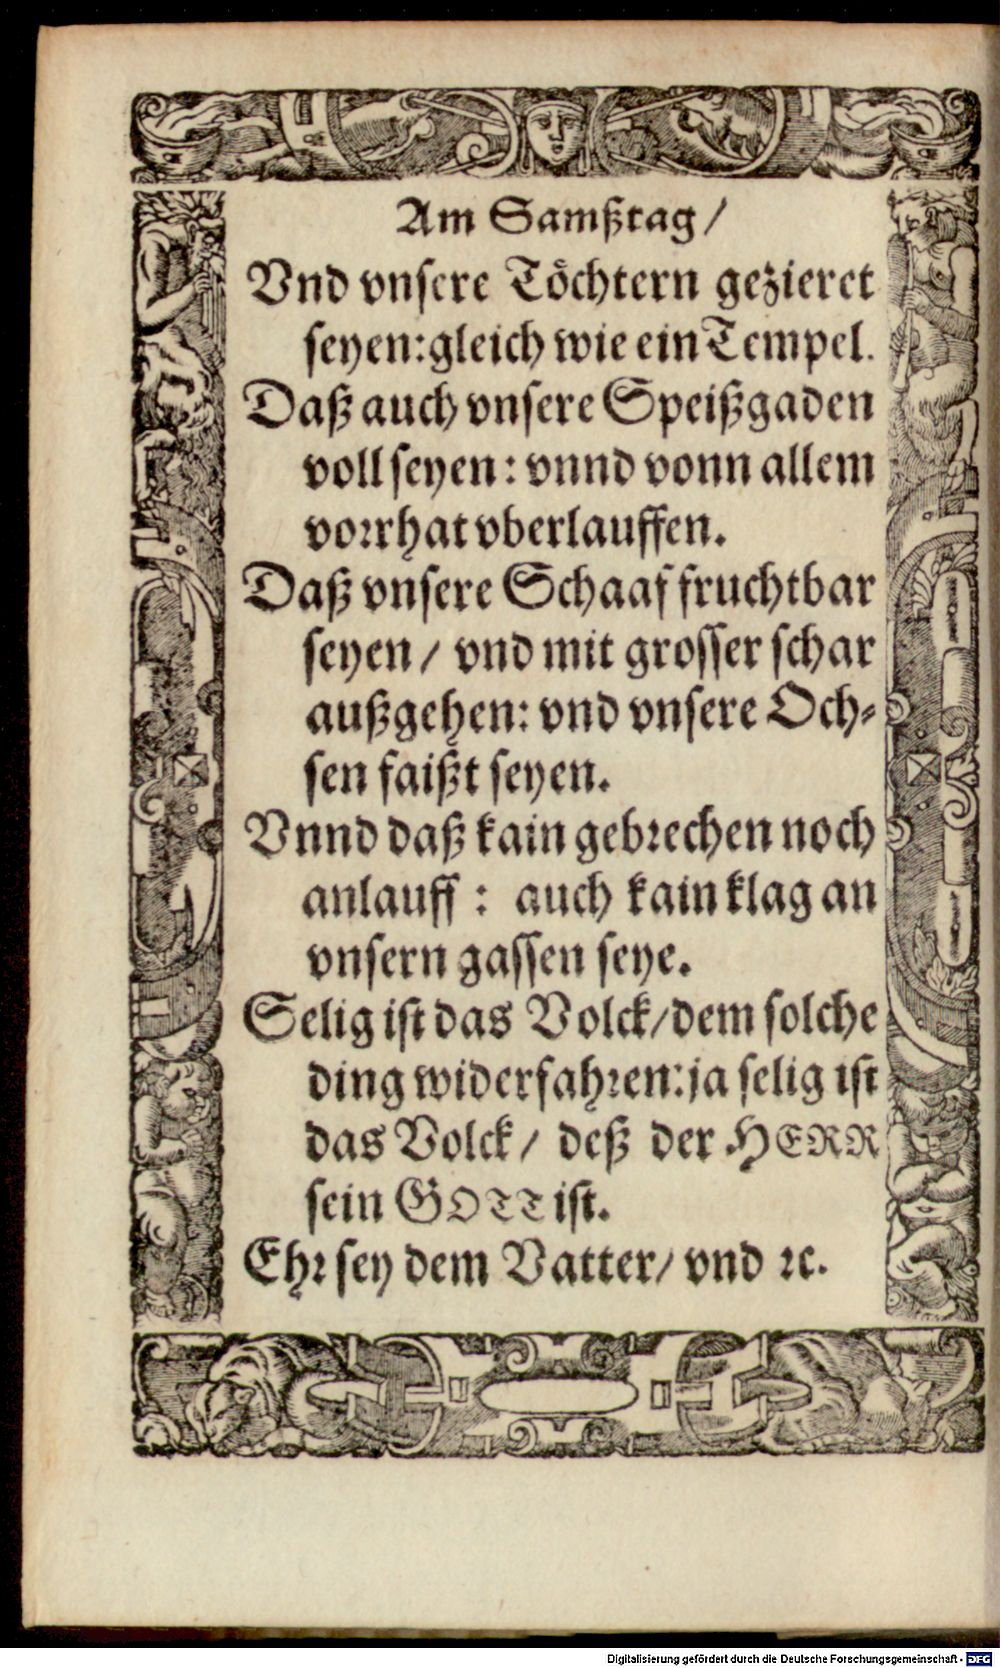 Am Samßtag/
Vnd vnsere Töchtern gezieret
seyen: gleich wie ein Tempel.
Daß auch vnsere Speißgaden
voll seyen: vnnd vonn allem
vorrhat vberlauffen.
Daß vnsere Schaaf fruchtbar
seyen/ vnd mit grosser schar
außgehen: vnd vnsere Och-
sen faißt seyen.
Vnnd daß kain gebrechen noch
anlauff: auch kain klag an
vnsern gassen seye.
Selig ist das Volck/ dem solche
ding widerfahren: ja selig ist
das Volck/ deß der HERR
sein GOTT ist.
Ehr sey dem Vatter/ vnd ꝛc.
Digitalisierung gefördert durch die Deutsche Forschungsgemeinschaft - DFG